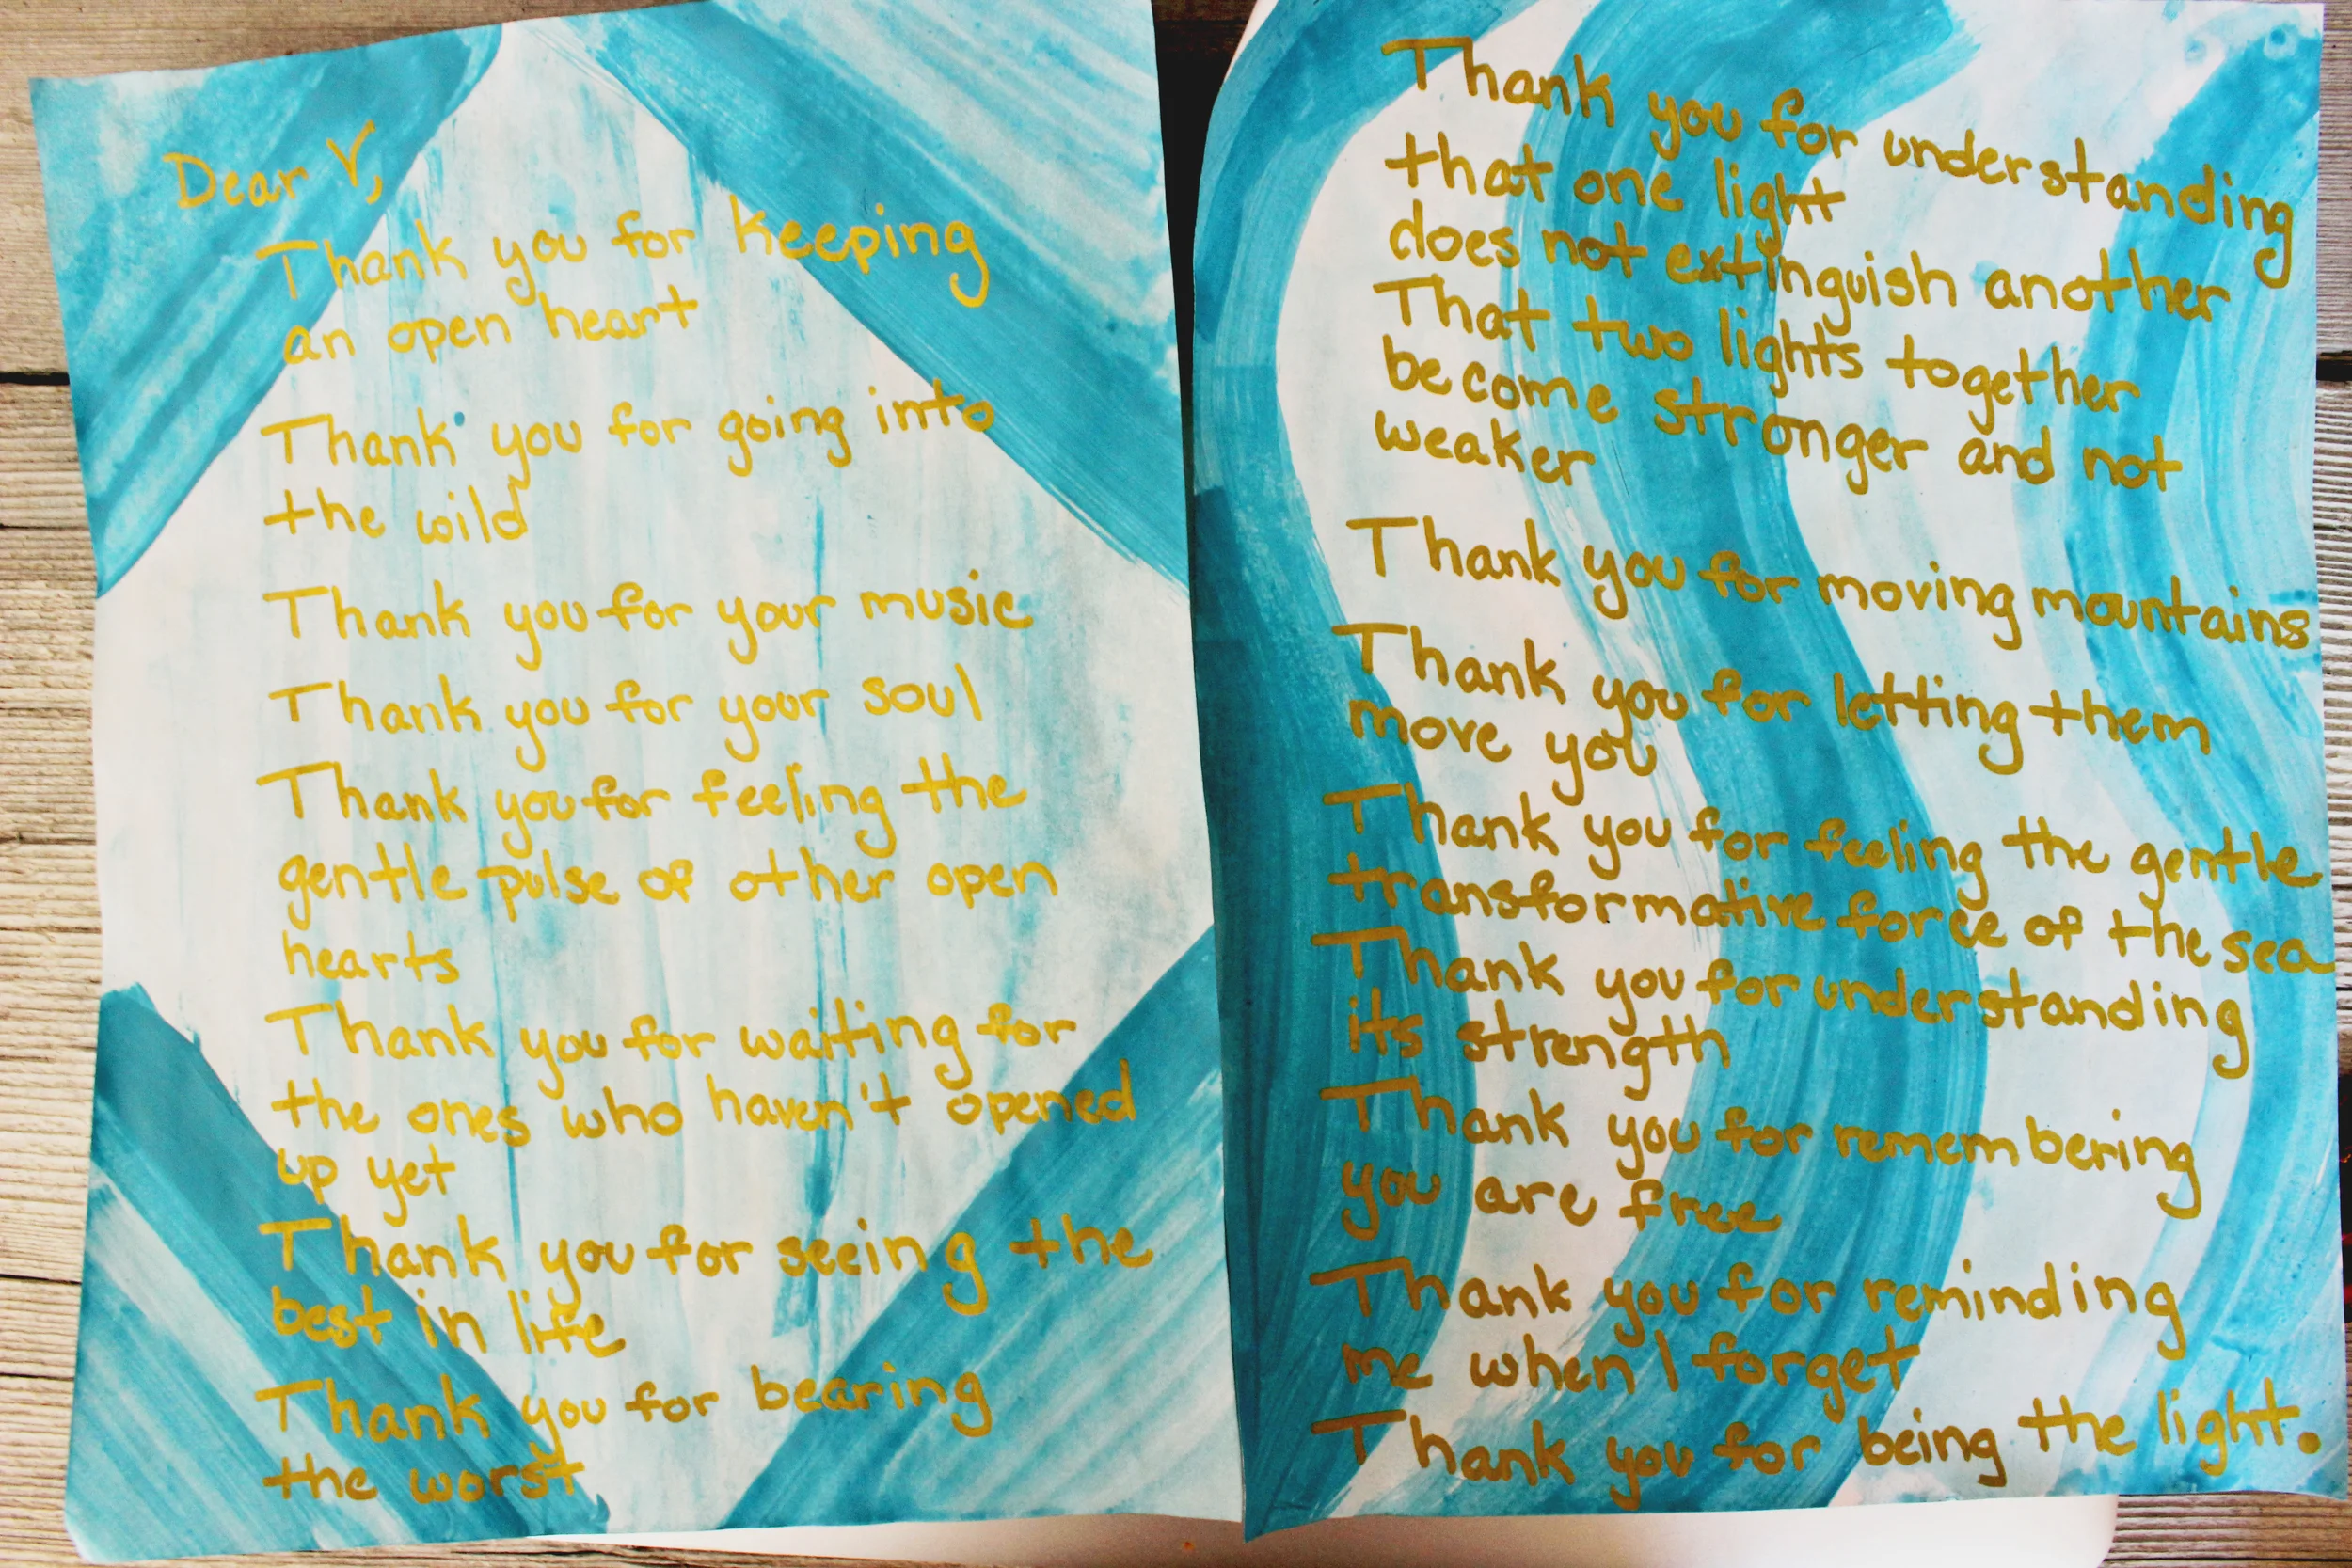 Dear V,
Thank you for keeping
an open heart
Thank you for going into
the wild
Thank you for your music
Thank you for your soul
Thank you for feeling the
gentle pulse of other open
hearts
Thank you for waiting for
the ones who haven't opened
up yet
Thank you for seeing the
best in life
Thank you for bearing
the worst
Thank you for understanding
that one light
does not extinguish another
That two lights together
become stronger and not
weaker
Thank you for moving mountains
Thank you for letting them
move you
Thank you for feeling the gentle
transformative force of the sea
Thank you for understanding
its strength
Thank you for remembering
you are free
Thank you for reminding
me when I forget
Thank you for being the light.